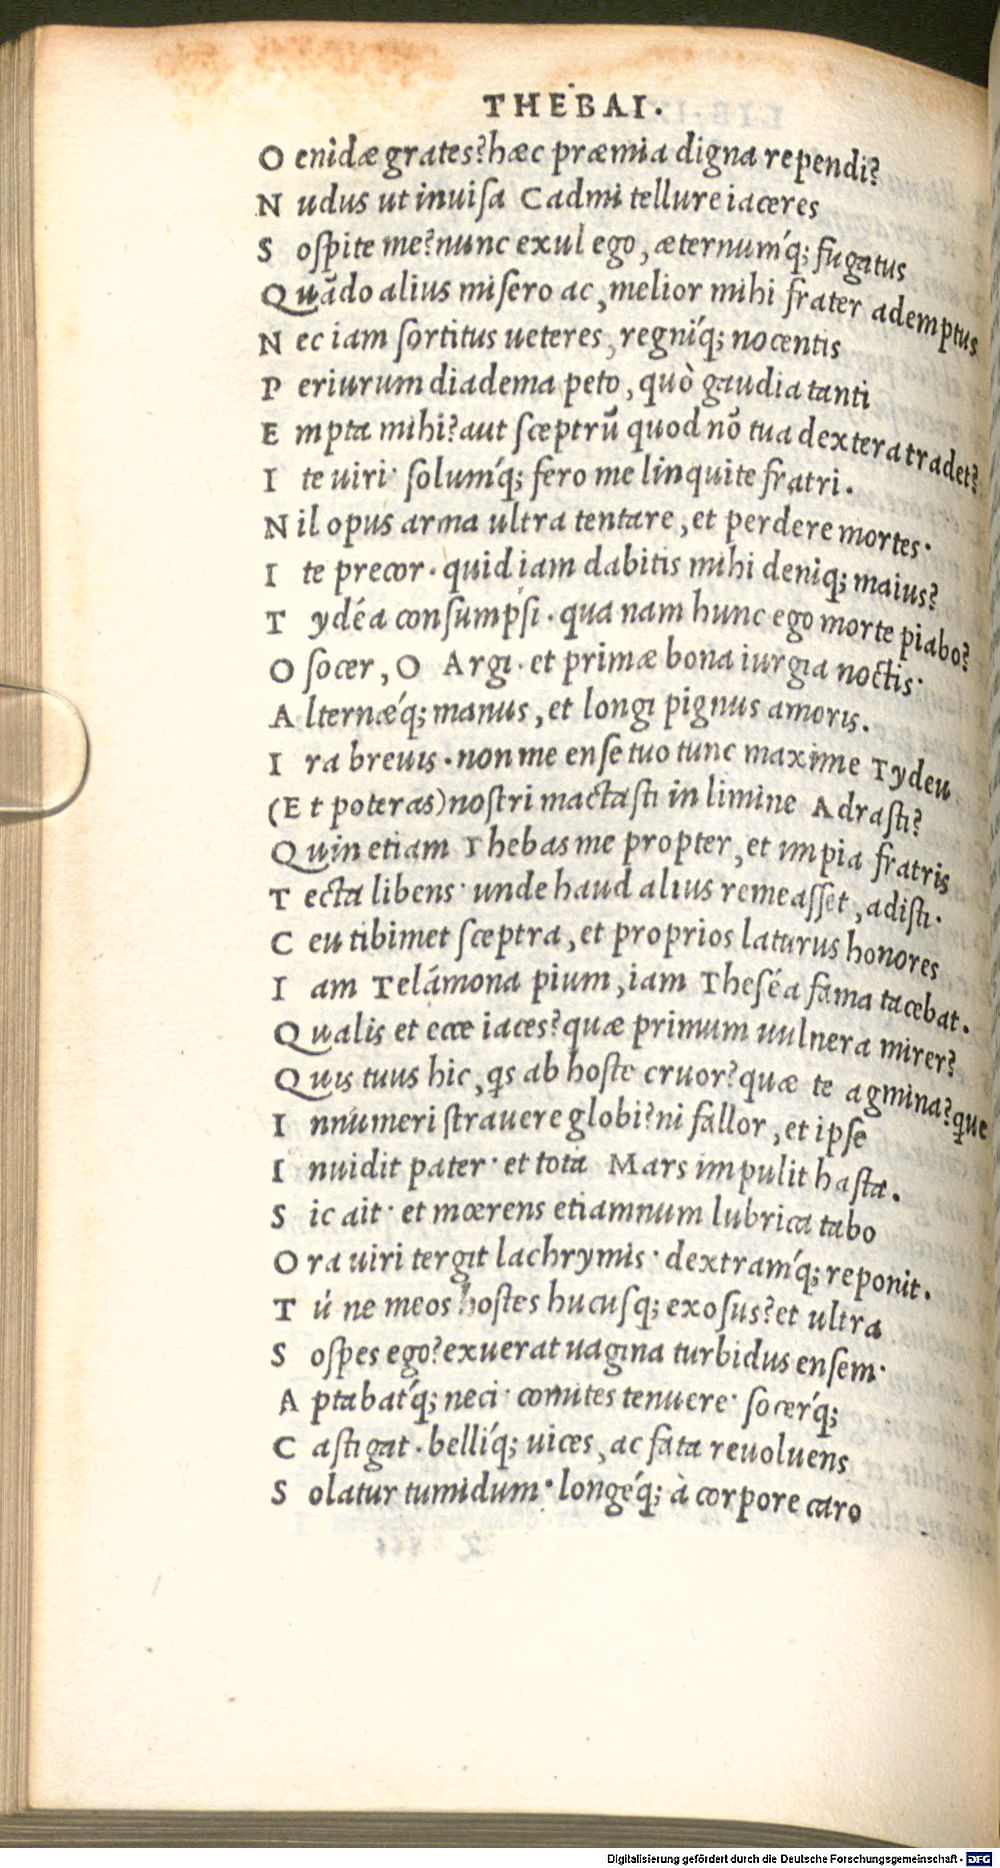 THEBAI.
O enidæ grates? hæc præmia digna rependi?
N udus ut inuisa Cadmi tellure iaceres
S ospite me? nunc exul ego, æternumq́; fugatus
Quãdo alius misero ac, melior mihi frater ademptus
N ec iam sortitus ueteres, regniq́; nocentis
P eriurum diadema peto, quò gaudia tanti
E mpta mihi? aut sceptrũ quod nõ tua dextera tradet?
I te uiri· solumq́; fero me linquite fratri.
N il opus arma ultra tentare, et perdere mortes·
I te precor· quid iam dabitis mihi deniq; maius?
T ydéa consumpsi· qua nam hunc ego morte piabo?
O socer, O Argi· et primæ bona iurgia noctis·
A lternæq́; manus, et longi pignus amoris.
I ra breuis· non me ense tuo tunc maxime Tydeu
(E t poteras) nostri mactasti in limine Adrasti?
Quin etiam Thebas me propter, et impia fratris
T ecta libens· unde haud alius remeasset, adisti·
C eu tibimet sceptra, et proprios laturus honores
I am Telámona pium, iam Theséa fama tacebat.
Qualis et ecce iaces? quæ primum uulnera mirer?
Quis tuus hic, qs ab hoste cruor? quæ te agmina? que
I nnumeri strauere globi? ni fallor, et ipse
I nuidit pater· et tota Mars impulit hasta.
S ic ait· et mœrens etiamnum lubrica tabo
O ra uiri tergit lachrymis· dextramq́; reponit.
T ú ne meos hostes hucusq; exosus? et ultra
S ospes ego? exuerat uagina turbidus ensem·
A ptabatq́; neci· comites tenuere· socerq́;
C astigat· belliq́; uices, ac fata reuoluens
S olatur tumidum· longeq́; à corpore caro
Digitalisierung gefördert durch die Deutsche Forschungsgemeinschaft - DFG